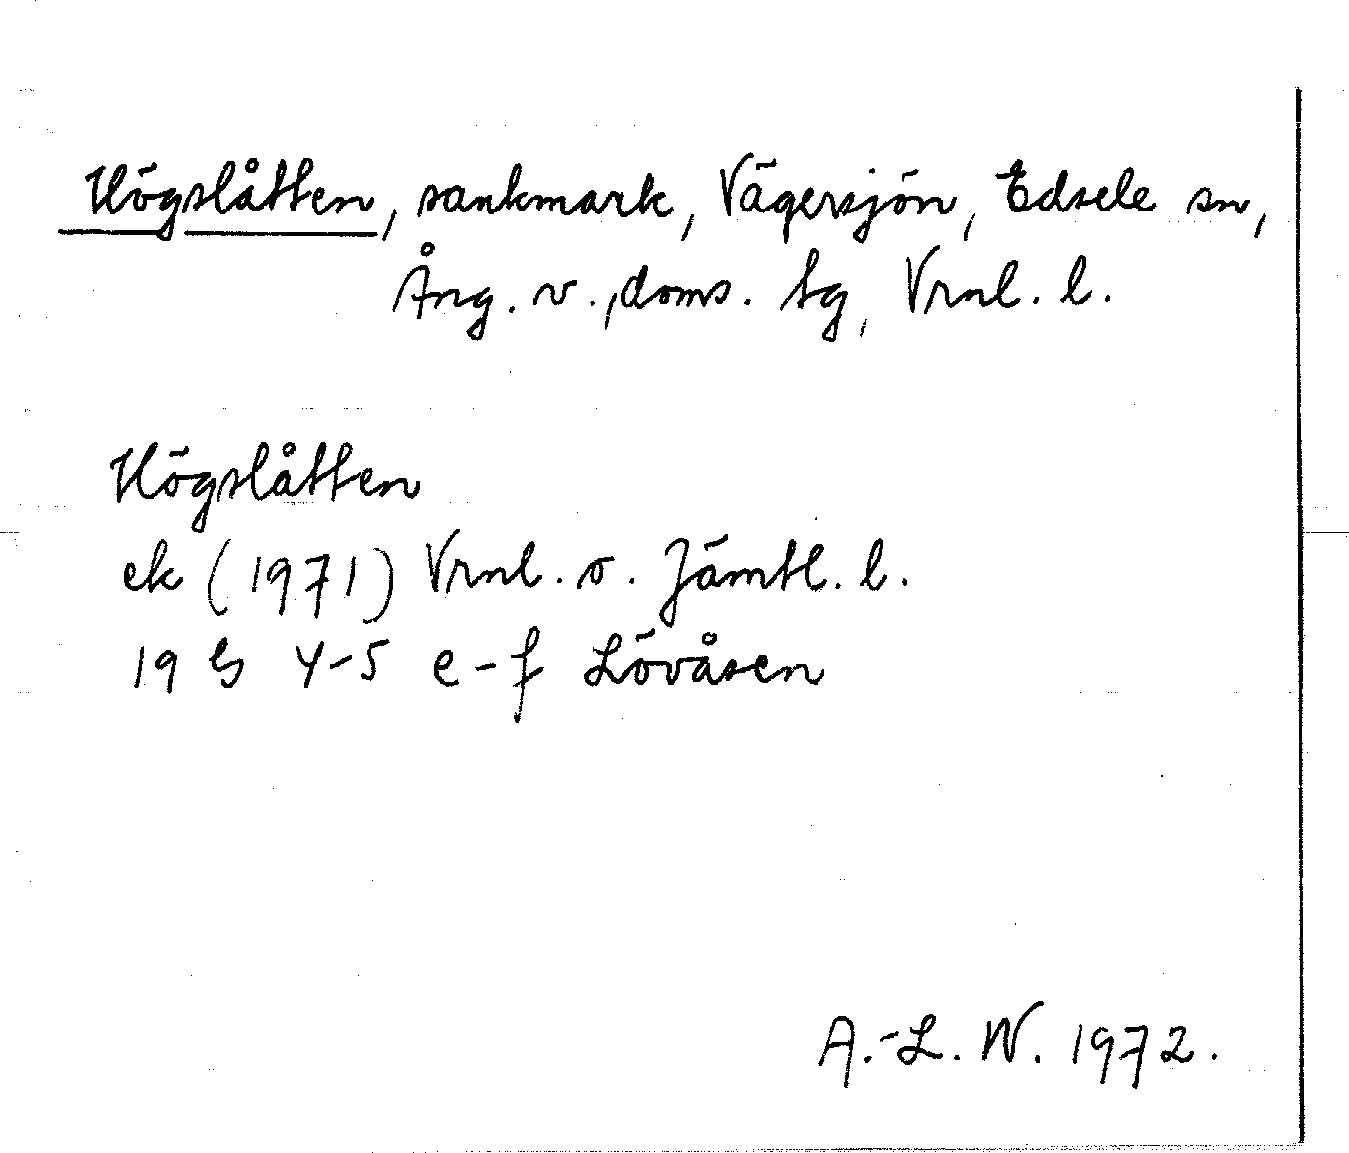 Högslåtten, sankmark, Vägersjön, Edsele sn,
Ång. v., doms. tg, Vrnl. l.
Högslåtten
ek (1971) Vrnl. o. Jämtl. l.
19 G 4-5 e-f Lövåsen
A.-L. W. 1972.